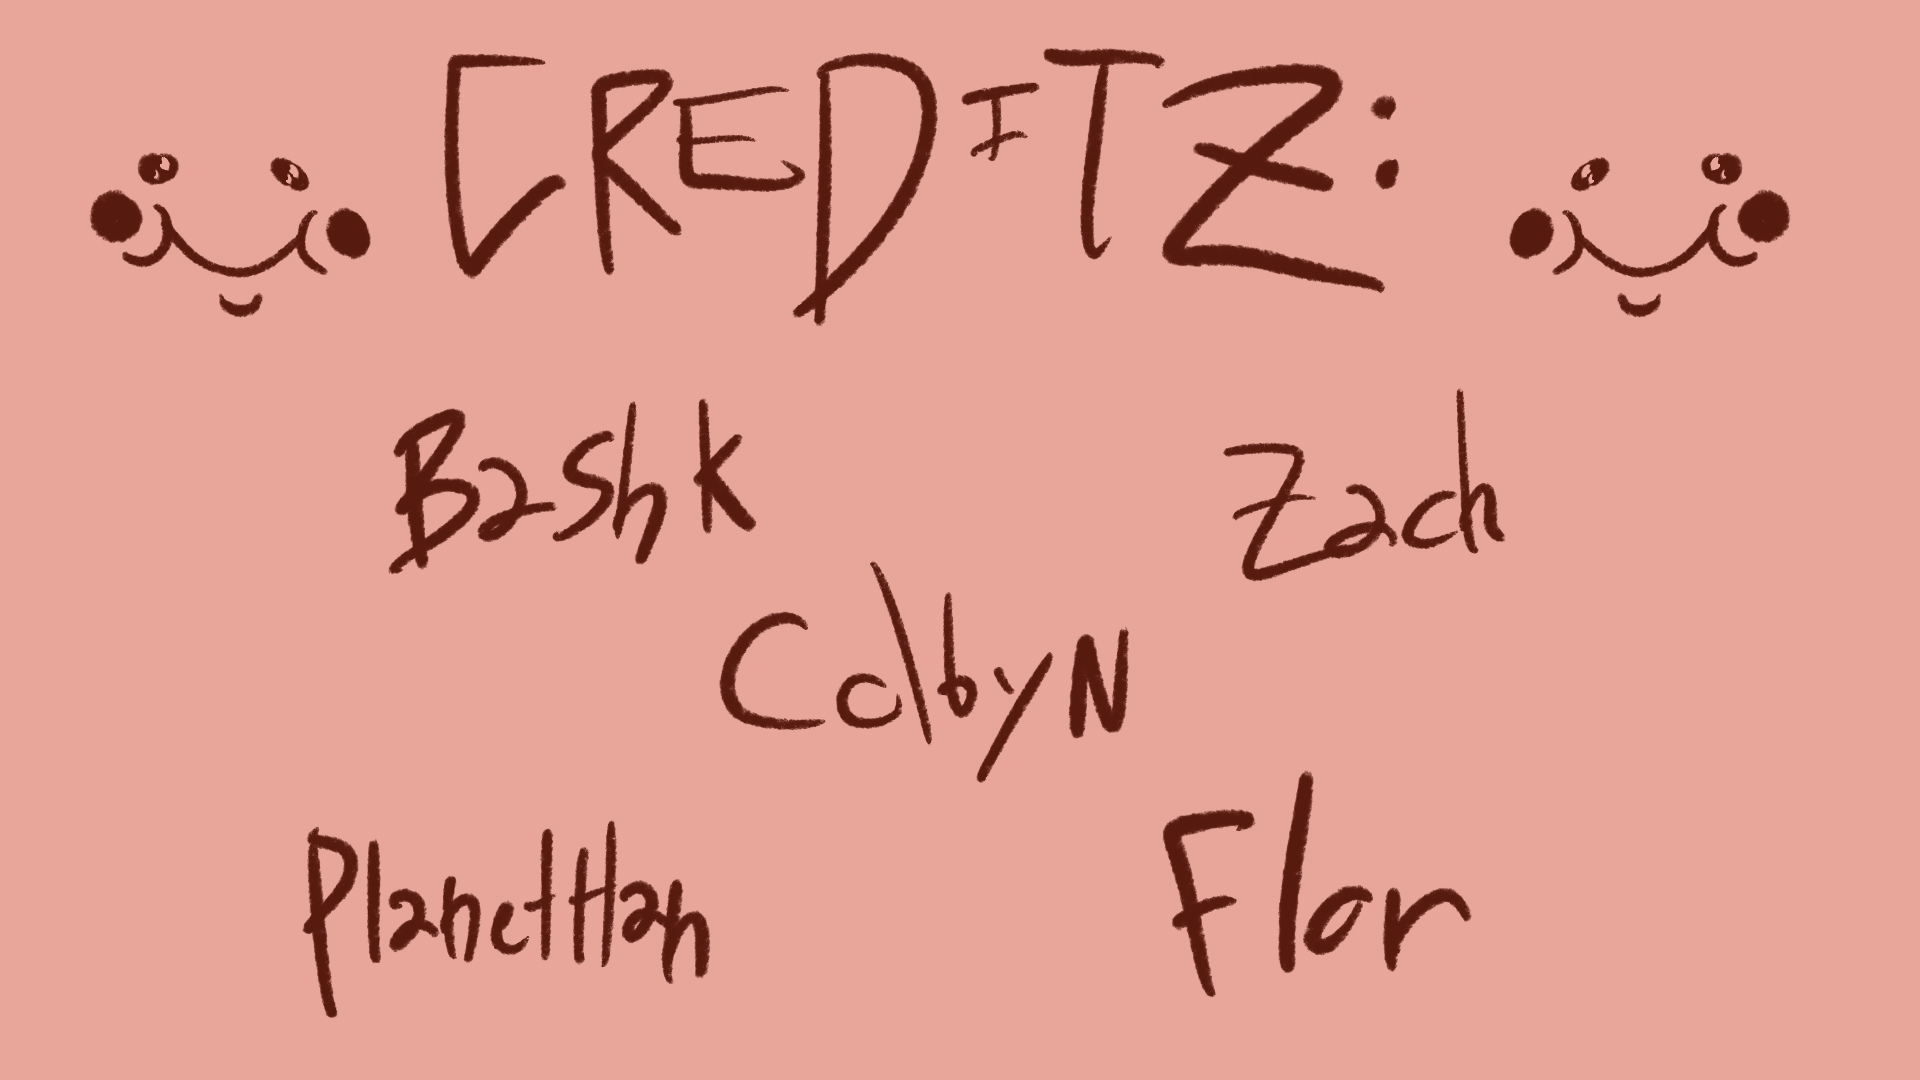 CREDITZ:
Bashk Zach
ColbyN
PlanetHan Flor